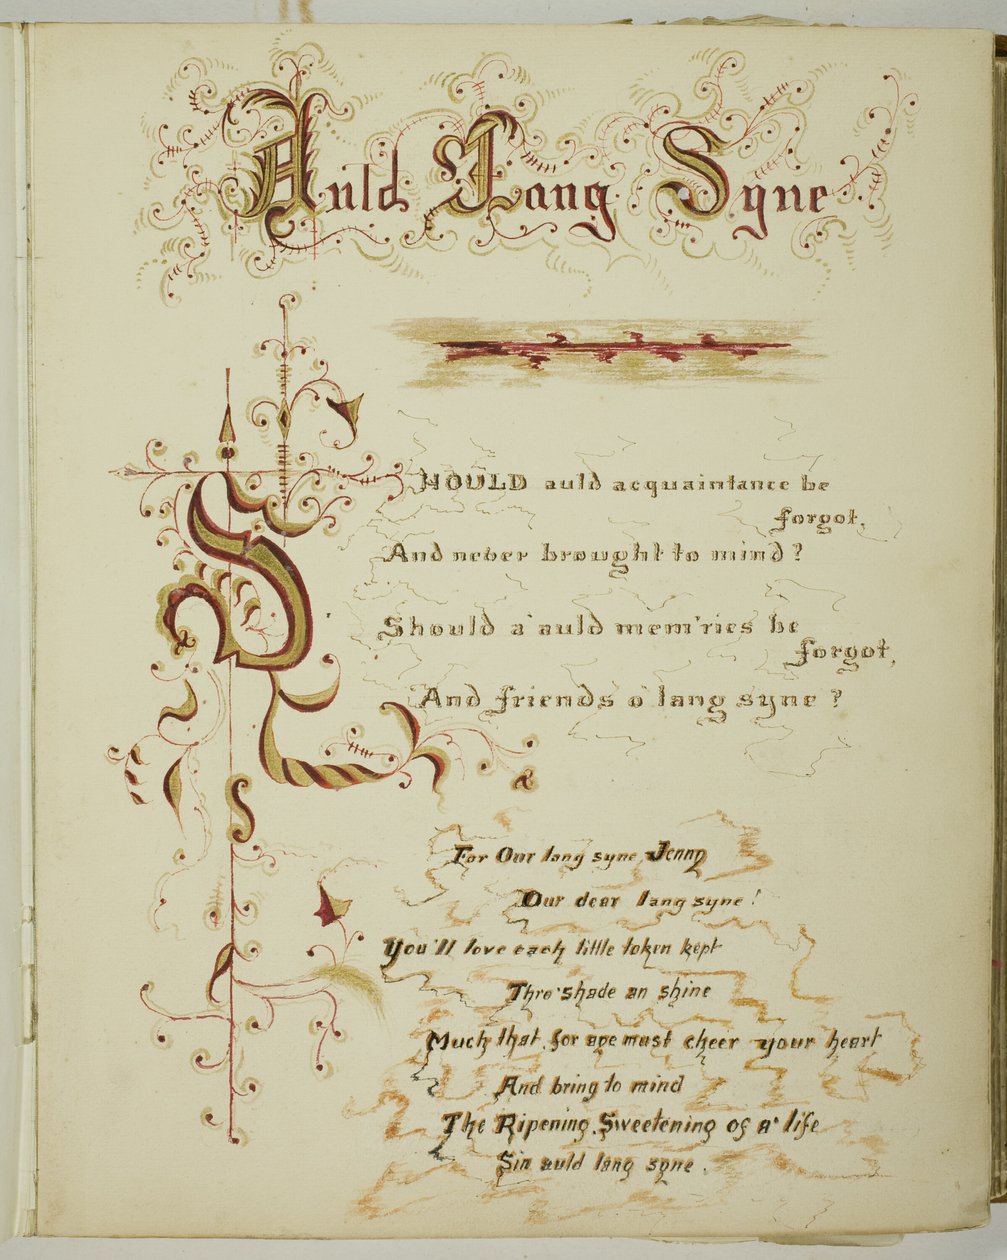 Auld Lang Syne
SHOULD auld acquaintance be
forgot,
And never brought to mind?
Should a' auld mem'ries be
forgot,
And friends o' lang syne?
For Our lang syne, Jenny
Our dear lang syne!
You'll love each little token kept
Thro' shade an shine
Much that, for aye must cheer your heart
And bring to mind
The Ripening, Sweetening of a' life
Sin auld lang syne.